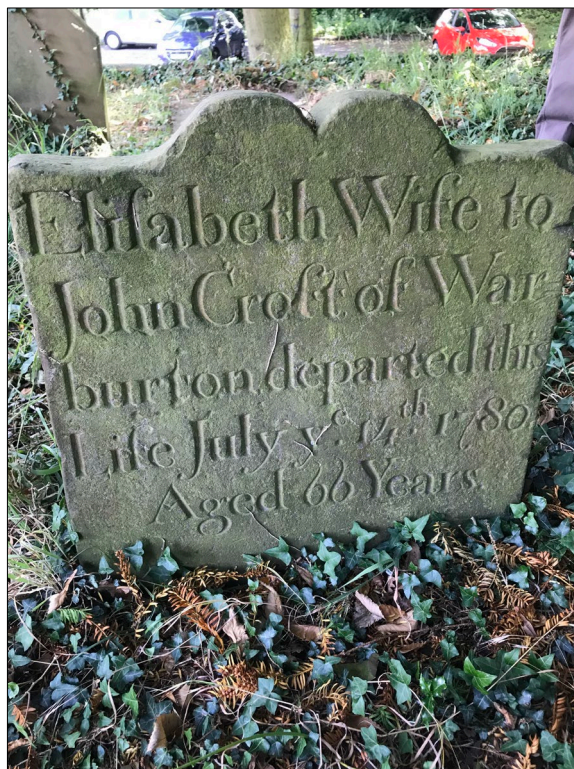 Eliſabeth Wife to
John Croft of War=
burton departed this
Life July yᵉ. 14ᵗʰ. 1780.
Aged 66 Years.